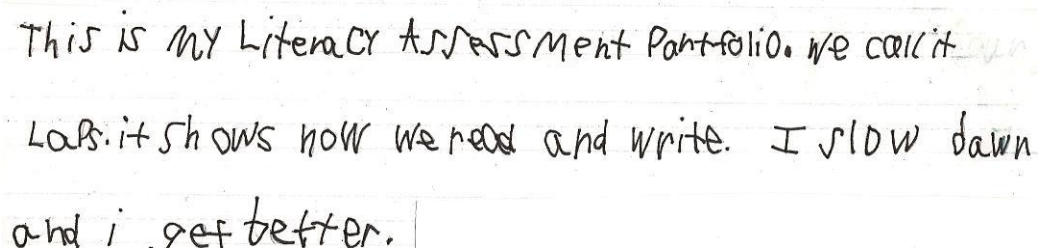 This is MY LiteracY AssessMent Pantfolio. We call it
LaPs. it Shows how we read and write. I slow dawn
and i get better.